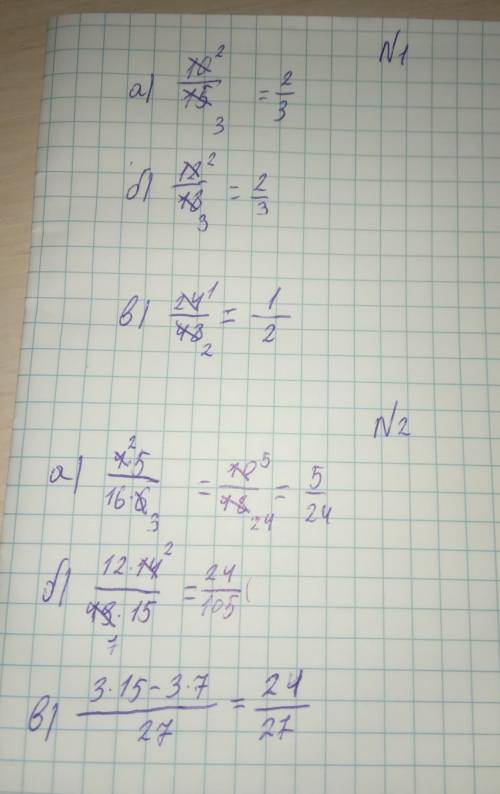 N1
а) 10² / 15₃ = 2/3
б) 12² / 18₃ = 2/3
в) 24¹ / 48₂ = 1/2
N2
а) ²·5 / 16·6₃ = 10⁵ / 48₂₄ = 5/24
б) 12·14² / 49₇·15 = 24/105
в) 3·15-3·7 / 27 = 24/27